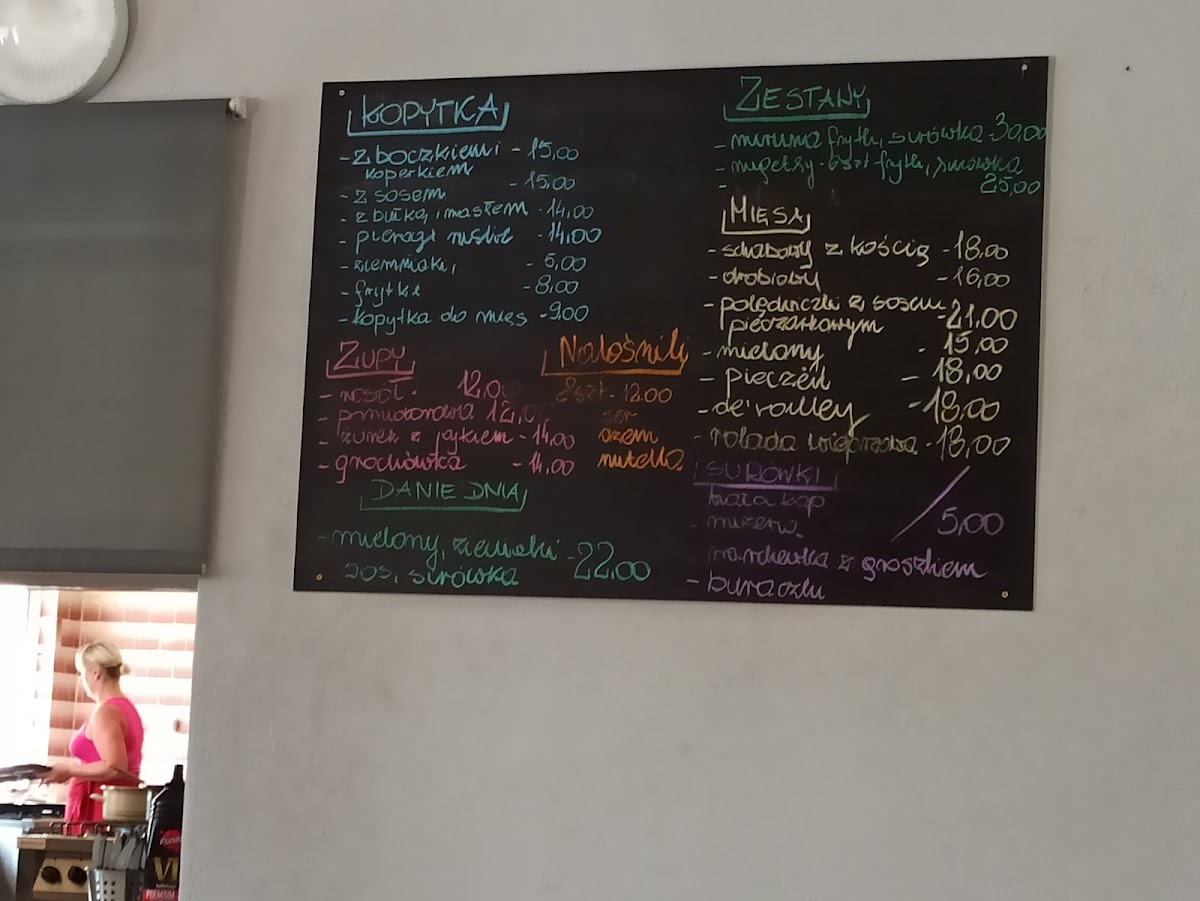 KOPYTKA
- z boczkiem i - 15,00
koperkiem
- z sosem - 15,00
- z bułką i masłem - 14,00
- pierogi ruskie - 14,00
- ziemniaki, - 5,00
- frytki - 8,00
- kopytka do mięs - 9.00
ZUPY
- rosół - 12.00
- pomidorowa 12,00
- żurek z jajkiem - 14.00
- grochówka - 14.00
Naleśniki
2szt - 12.00
ser
dżem
nutella
DANIE DNIA
- mielony, ziemniaki - 22,00
sos, surówka
ZESTAWY
- miruna frytki, surówka - 30,00
- nugetsy - 6szt frytki, surówka
25,00
-
MIĘSA
- schabowy z kością - 18,00
- drobiowy - 16,00
- polędwiczki z sosem - 21.00
pieczarkowym
- mielony - 15,00
- pieczeń - 18,00
- de'volley - 18,00
- rolada wieprzowa - 18,00
SURÓWKI
biała kap
- mizeria / 5,00
marchewka z groszkiem
- buraczki
PREMIUM